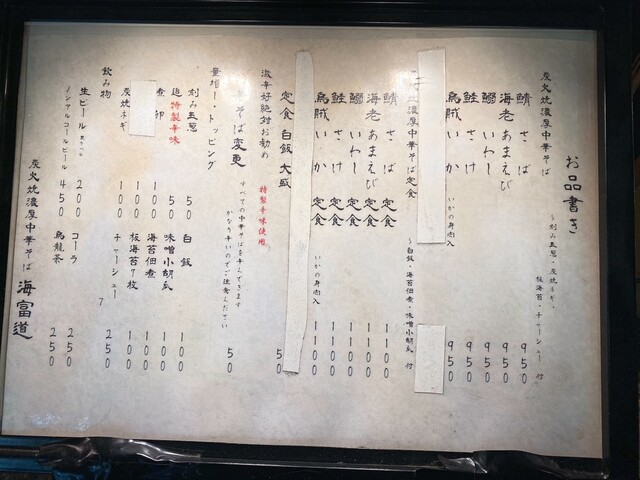 お品書き
炭火焼濃厚中華そば
～刻み玉葱・炭焼ネギ・
板海苔・チャーシュー 付
鯖 さば 950
海老 あまえび 950
鰯 いわし 950
鮭 さけ 950
烏賊 いか いかの身肉入 950
炭火焼濃厚中華そば定食
～白飯・海苔佃煮・味噌小胡瓜 付
鯖 さば 定食 1100
海老 あまえび 定食 1100
鰯 いわし 定食 1100
鮭 さけ 定食 1100
烏賊 いか 定食 いかの身肉入 1100
定食 白飯 大盛 50
激辛好絶対お勧め 特製辛味使用
そば変更 50
すべての中華そばを辛くできます
かなり辛いのでご注意ください
量増し・トッピング
刻み玉葱 50
白飯 100
追 特製辛味 50
味噌小胡瓜 100
煮卵 100
海苔佃煮 100
板海苔7枚 100
炭焼ネギ 100
チャーシュー 250
飲み物
生ビール 200
コーラ 250
ノンアルコールビール 450
烏龍茶 250
炭火焼濃厚中華そば 海富道